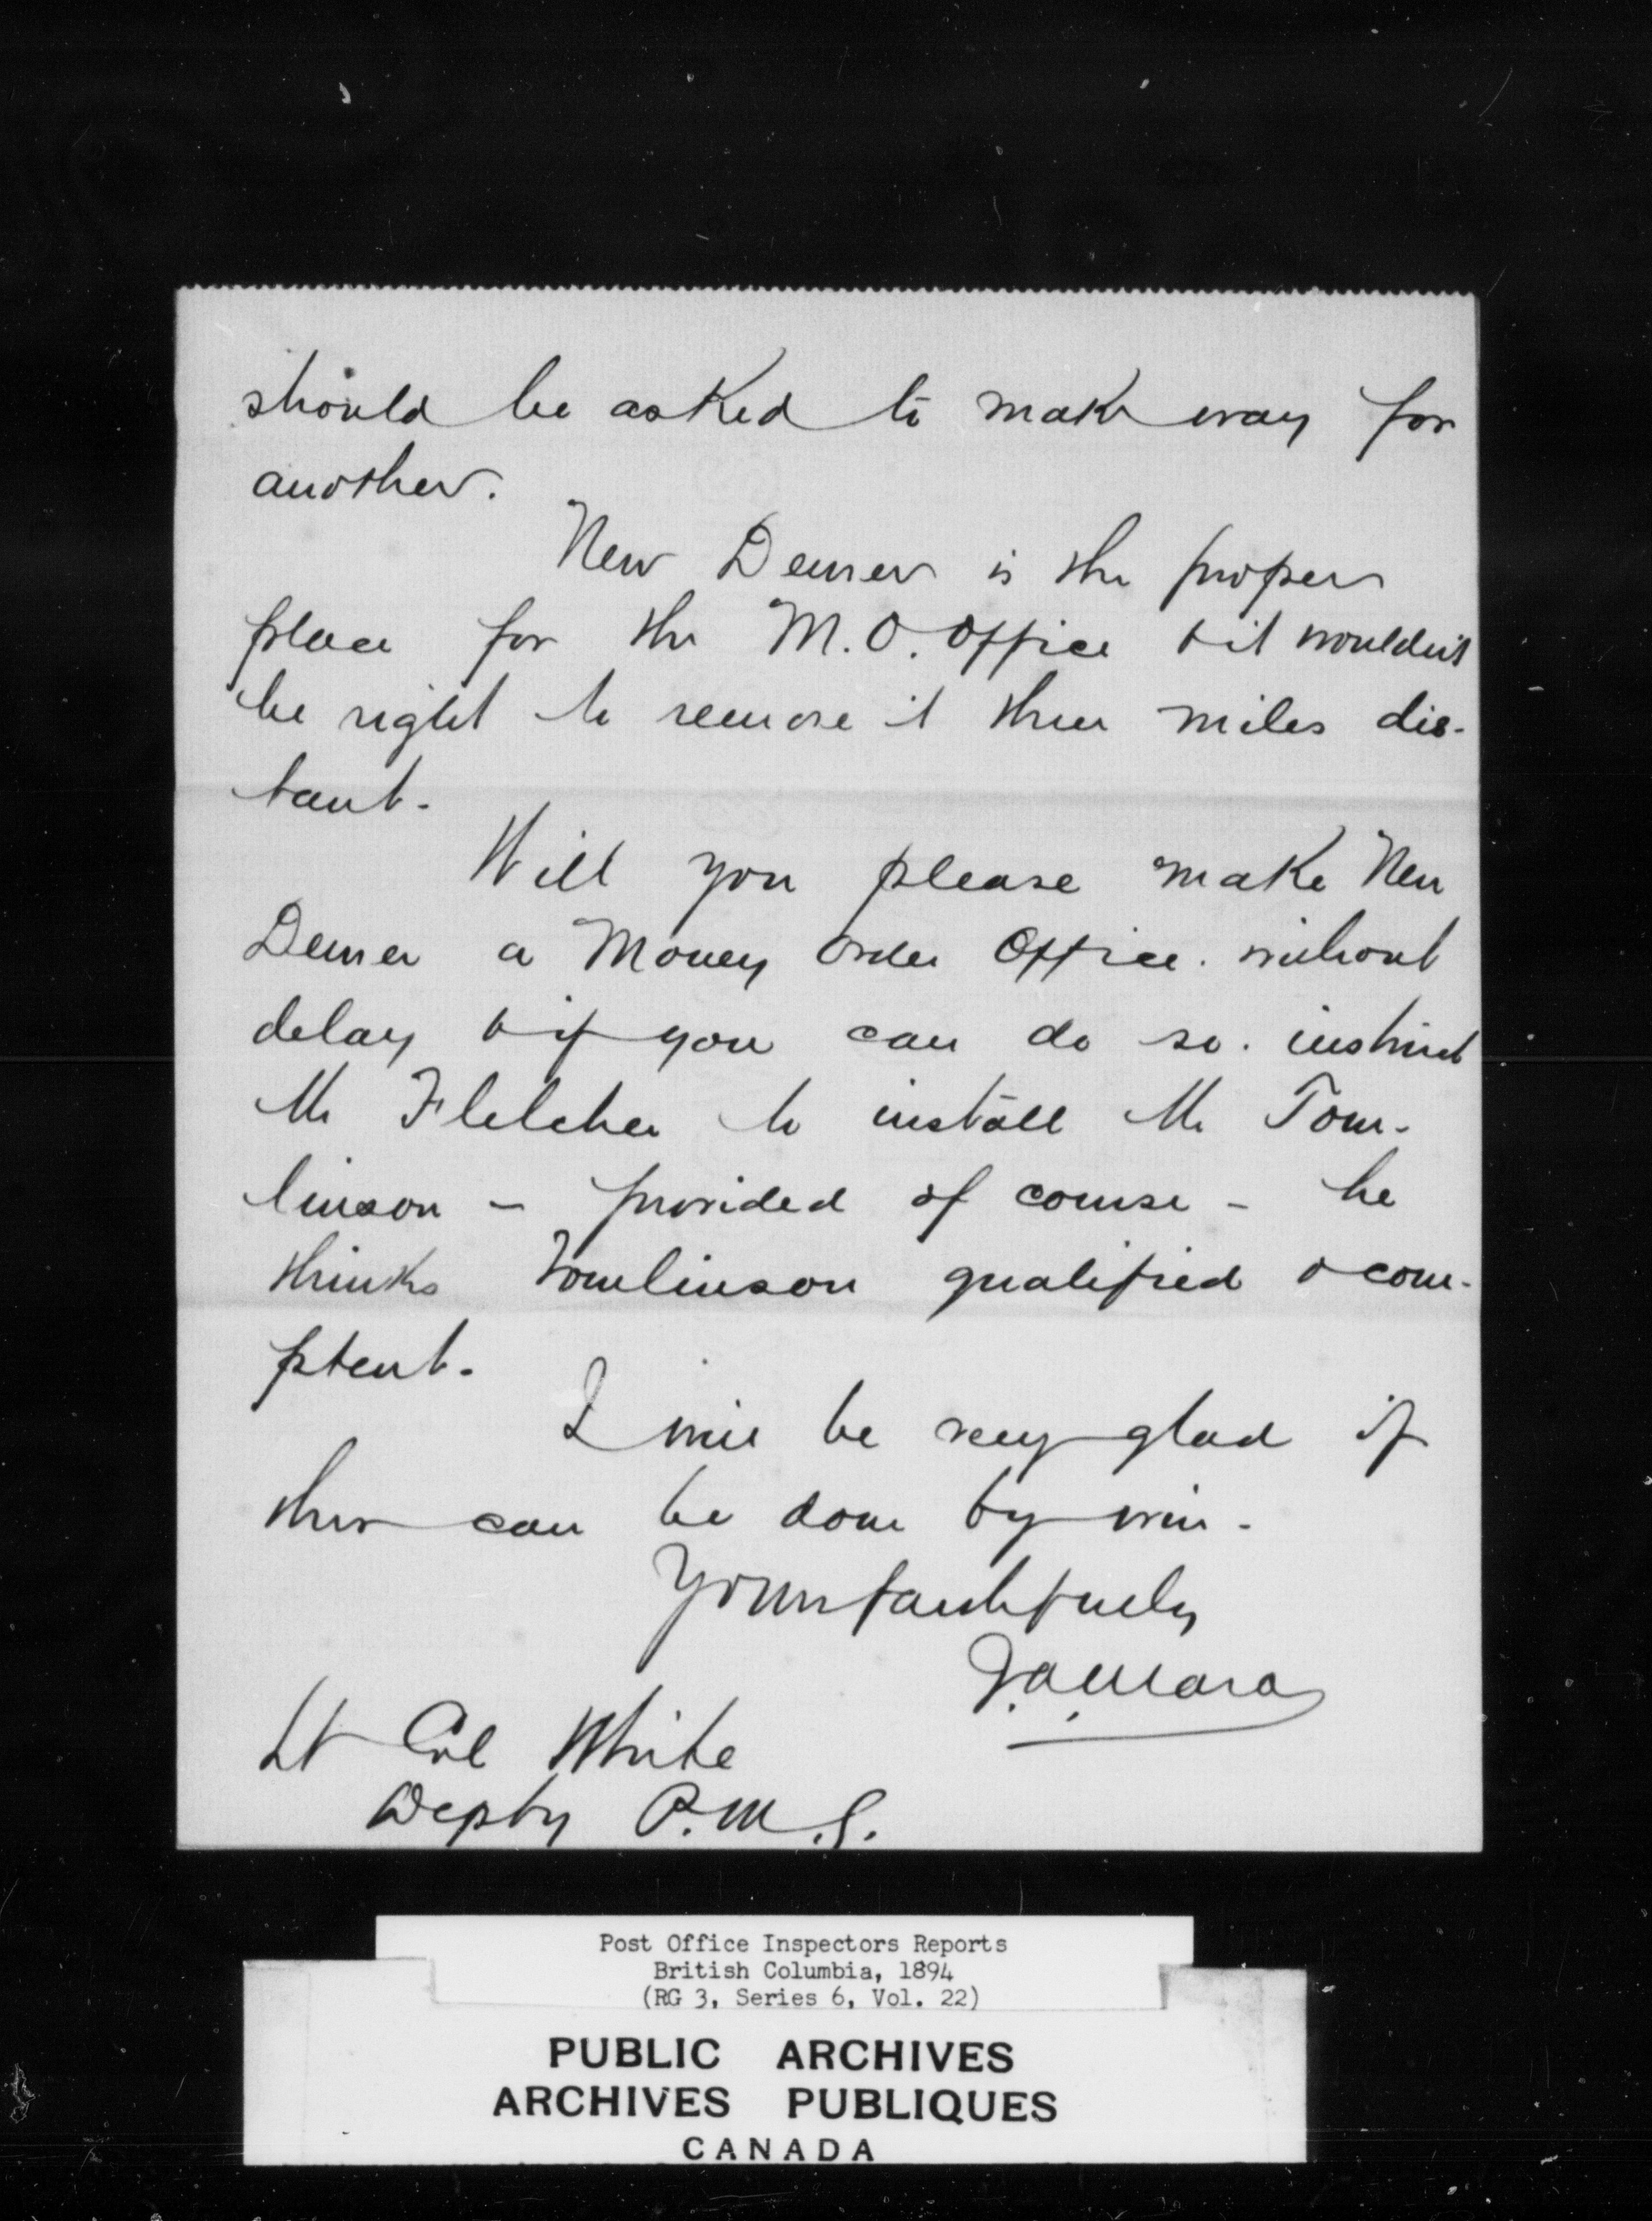 should be asked to make way for
another.
New Denver is the proper
place for the M.O. Office & it wouldn't
be right to remove it three miles dis-
tant.
Will you please make New
Denver a Money Order Office. without
delay & if you can do so. instruct
Mr Fletcher to install Mr Tom-
linson - provided of course - he
thinks Tomlinson qualified & com-
ptent.
I will be very glad if
this can be done by wire.
Yours faithfully
J.A. Mara
Lt Col White
Depty P.M.G.
Post Office Inspectors Reports
British Columbia, 1894
(RG 3, Series 6, Vol. 22)
PUBLIC ARCHIVES
ARCHIVES PUBLIQUES
CANADA